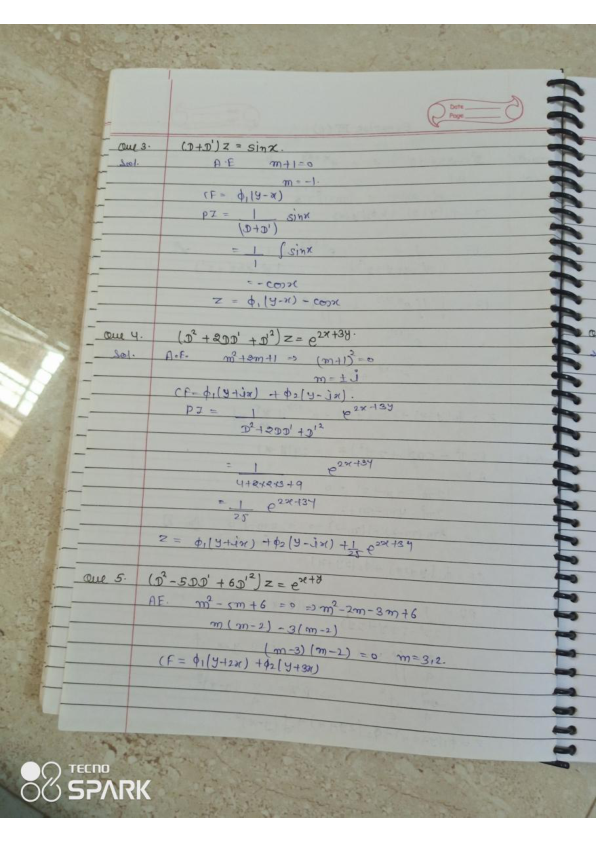 Date
Page
Que 3. (D+D')z = sinx.
Sol. A.E m+1=0
m=-1.
CF = ϕ₁(y-x)
PI = 1/(D+D') sinx
= 1/1 ∫sinx
= -cosx
z = ϕ₁(y-x) - cosx
Que 4. (D² + 2DD' + D'²)z = e^(2x+3y).
Sol. A.E. m²+2m+1 => (m+1)²=0
m = ± j
CF = ϕ₁(y+jx) + ϕ₂(y-jx).
PI = 1/(D²+2DD'+D'²) e^(2x+3y)
= 1/(4+2×2×3+9) e^(2x+3y)
= 1/25 e^(2x+3y)
z = ϕ₁(y+jx) + ϕ₂(y-jx) + 1/25 e^(2x+3y)
Que 5. (D² - 5DD' + 6D'²)z = e^(x+y)
AE. m² - 5m + 6 = 0 => m²-2m-3m+6
m(m-2) - 3(m-2)
(m-3)(m-2) = 0 m=3,2.
CF = ϕ₁(y+2x) + ϕ₂(y+3x)
TECNO
SPARK